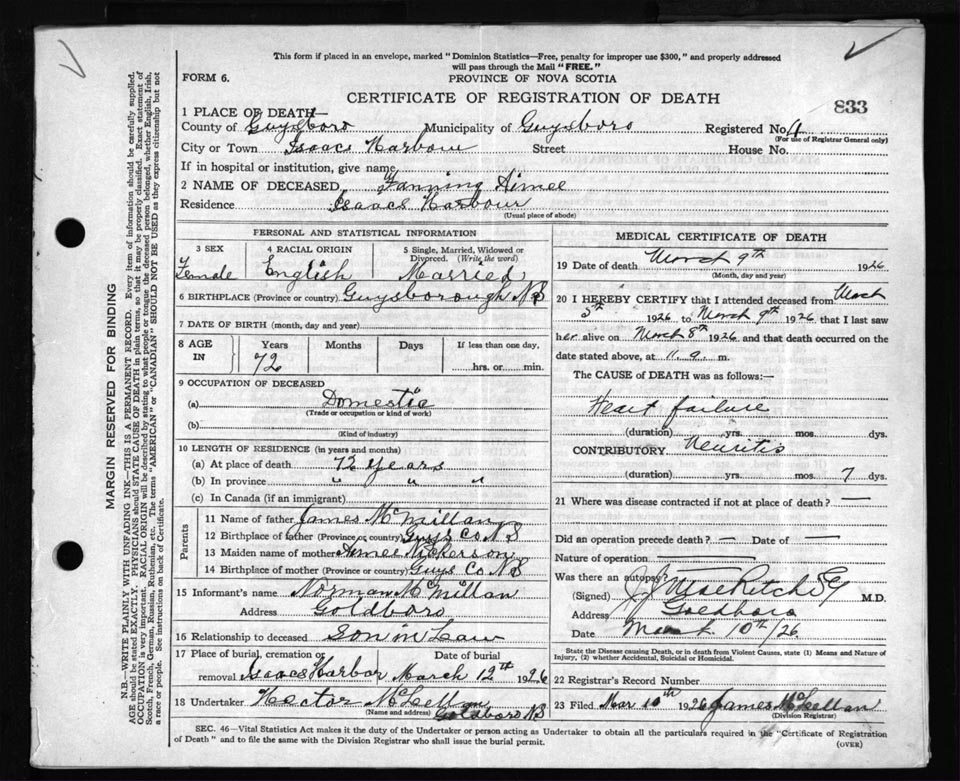 This form if placed in an envelope, marked "Dominion Statistics—Free, penalty for improper use $300," and properly addressed
will pass through the Mail "FREE."
FORM 6.
PROVINCE OF NOVA SCOTIA
CERTIFICATE OF REGISTRATION OF DEATH
833
1 PLACE OF DEATH—
County of Guysboro Municipality of Guysboro Registered No. 4
(For use of Registrar General only)
City or Town Isaacs Harbour Street House No.
If in hospital or institution, give name
2 NAME OF DECEASED Fanning Aimee
Residence Isaacs Harbour
(Usual place of abode)
PERSONAL AND STATISTICAL INFORMATION
3 SEX 4 RACIAL ORIGIN 5 Single, Married, Widowed or
Divorced. (Write the word)
Female English Married
6 BIRTHPLACE (Province or country) Guysborough N S
7 DATE OF BIRTH (month, day and year)
8 AGE IN Years Months Days If less than one day,
72 hrs. or min.
9 OCCUPATION OF DECEASED
(a) Domestic
(Trade or occupation or kind of work)
(b)
(Kind of industry)
10 LENGTH OF RESIDENCE (in years and months)
(a) At place of death 72 years
(b) In province " " "
(c) In Canada (if an immigrant)
Parents
11 Name of father James McMillan
12 Birthplace of father (Province or country) Guys Co N S
13 Maiden name of mother Aimee Nickerson
14 Birthplace of mother (Province or country) Guys Co N S
15 Informant's name Norman McMillan
Address Goldboro
16 Relationship to deceased Son in Law
17 Place of burial, cremation or Date of burial
removal Isaacs Harbor March 12th 1926
18 Undertaker Hector McLellan
(Name and address) Goldboro N S
MEDICAL CERTIFICATE OF DEATH
19 Date of death March 9th 1926
(Month, day and year)
20 I HEREBY CERTIFY that I attended deceased from March
5th 1926 to March 9th 1926 that I last saw
her alive on March 8th 1926 and that death occurred on the
date stated above, at 11 a. m.
The CAUSE of DEATH was as follows:—
Heart failure
(duration) yrs. mos. dys.
CONTRIBUTORY Neuritis
(duration) yrs. mos. 7 dys.
21 Where was disease contracted if not at place of death? —
Did an operation precede death? — Date of —
Nature of operation —
Was there an autopsy?
(Signed) M.D.
Address Goldboro
Date March 10th/26
State the Disease causing Death, or in death from Violent Causes, state (1) Means and Nature of
Injury, (2) whether Accidental, Suicidal or Homicidal.
22 Registrar's Record Number
23 Filed Mar 10th 1926 James McLellan
(Division Registrar)
SEC. 46—Vital Statistics Act makes it the duty of the Undertaker or person acting as Undertaker to obtain all the particulars required in the "Certificate of Registration
of Death" and to file the same with the Division Registrar who shall issue the burial permit.
(OVER)
MARGIN RESERVED FOR BINDING
N.B.—WRITE PLAINLY WITH UNFADING INK—THIS IS A PERMANENT RECORD. Every item of information should be carefully supplied.
AGE should be stated EXACTLY. PHYSICIANS should STATE CAUSE OF DEATH in plain terms, so that it may be properly classified. Exact statement of
OCCUPATION is very important. RACIAL ORIGIN will be described by stating to what people or tongue the deceased person belonged, whether English, Irish,
Scotch, French, German, Russian, Ruthenian, etc. The terms "AMERICAN" or "CANADIAN" SHOULD NOT BE USED as they express citizenship but not
a race or people. See instructions on back of Certificate.